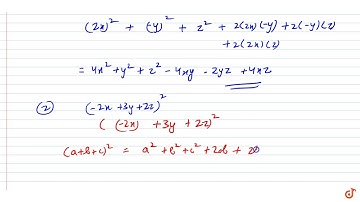 (2x)² + (-y)² + z² + 2(2x)(-y) + 2(-y)(z)
+ 2(2x)(z)
= 4x² + y² + z² - 4xy - 2yz + 4xz
(2) (-2x + 3y + 2z)²
( (-2x) + 3y + 2z)²
(a+b+c)² = a² + b² + c² + 2ab +